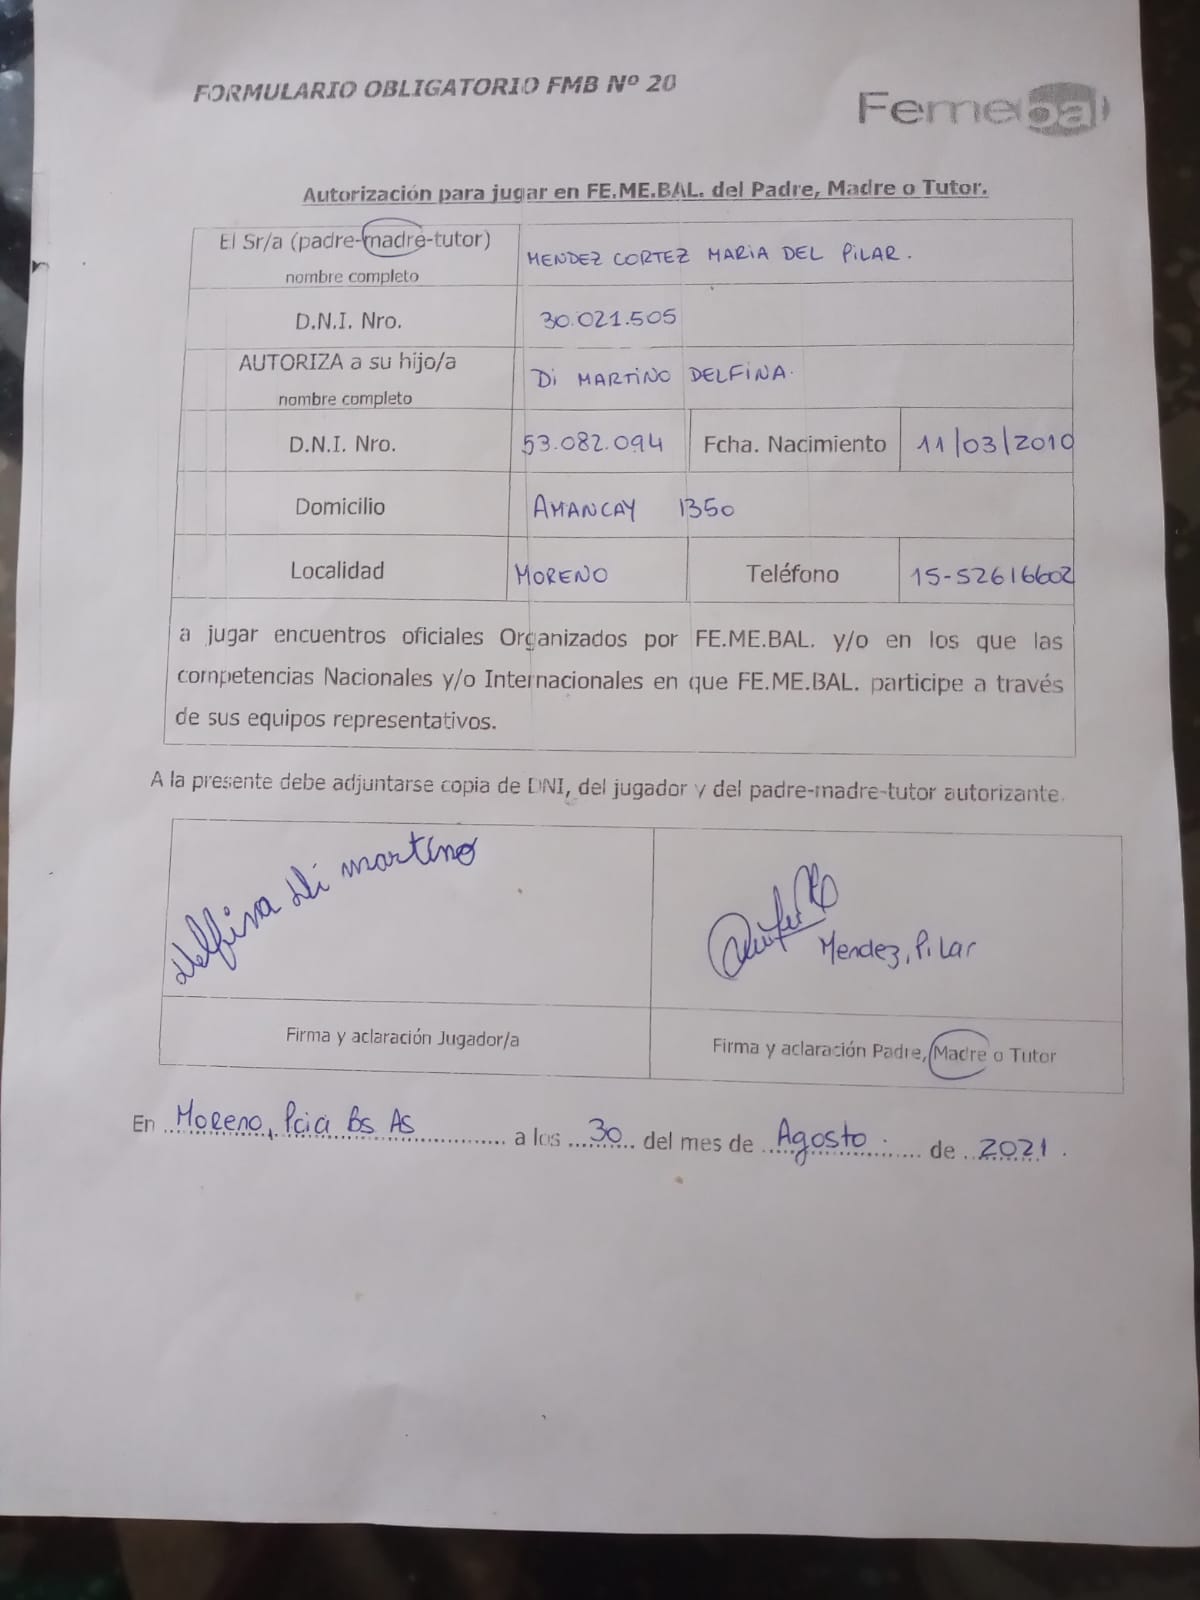 FORMULARIO OBLIGATORIO FMB Nº 20
Femebal
Autorización para jugar en FE.ME.BAL. del Padre, Madre o Tutor.
El Sr/a (padre-madre-tutor)
nombre completo
MENDEZ CORTEZ MARIA DEL PILAR.
D.N.I. Nro.
30.021.505
AUTORIZA a su hijo/a
nombre completo
Di MARTINO DELFINA.
D.N.I. Nro.
53.082.094
Fcha. Nacimiento
11/03/2010
Domicilio
AMANCAY 1350
Localidad
MORENO
Teléfono
15-52616602
a jugar encuentros oficiales Organizados por FE.ME.BAL. y/o en los que las
competencias Nacionales y/o Internacionales en que FE.ME.BAL. participe a través
de sus equipos representativos.
A la presente debe adjuntarse copia de DNI, del jugador y del padre-madre-tutor autorizante.
delfina di martino
Mendez, Pilar
Firma y aclaración Jugador/a
Firma y aclaración Padre, Madre o Tutor
En Moreno, Pcia Bs As a los 30 del mes de Agosto. de 2021.